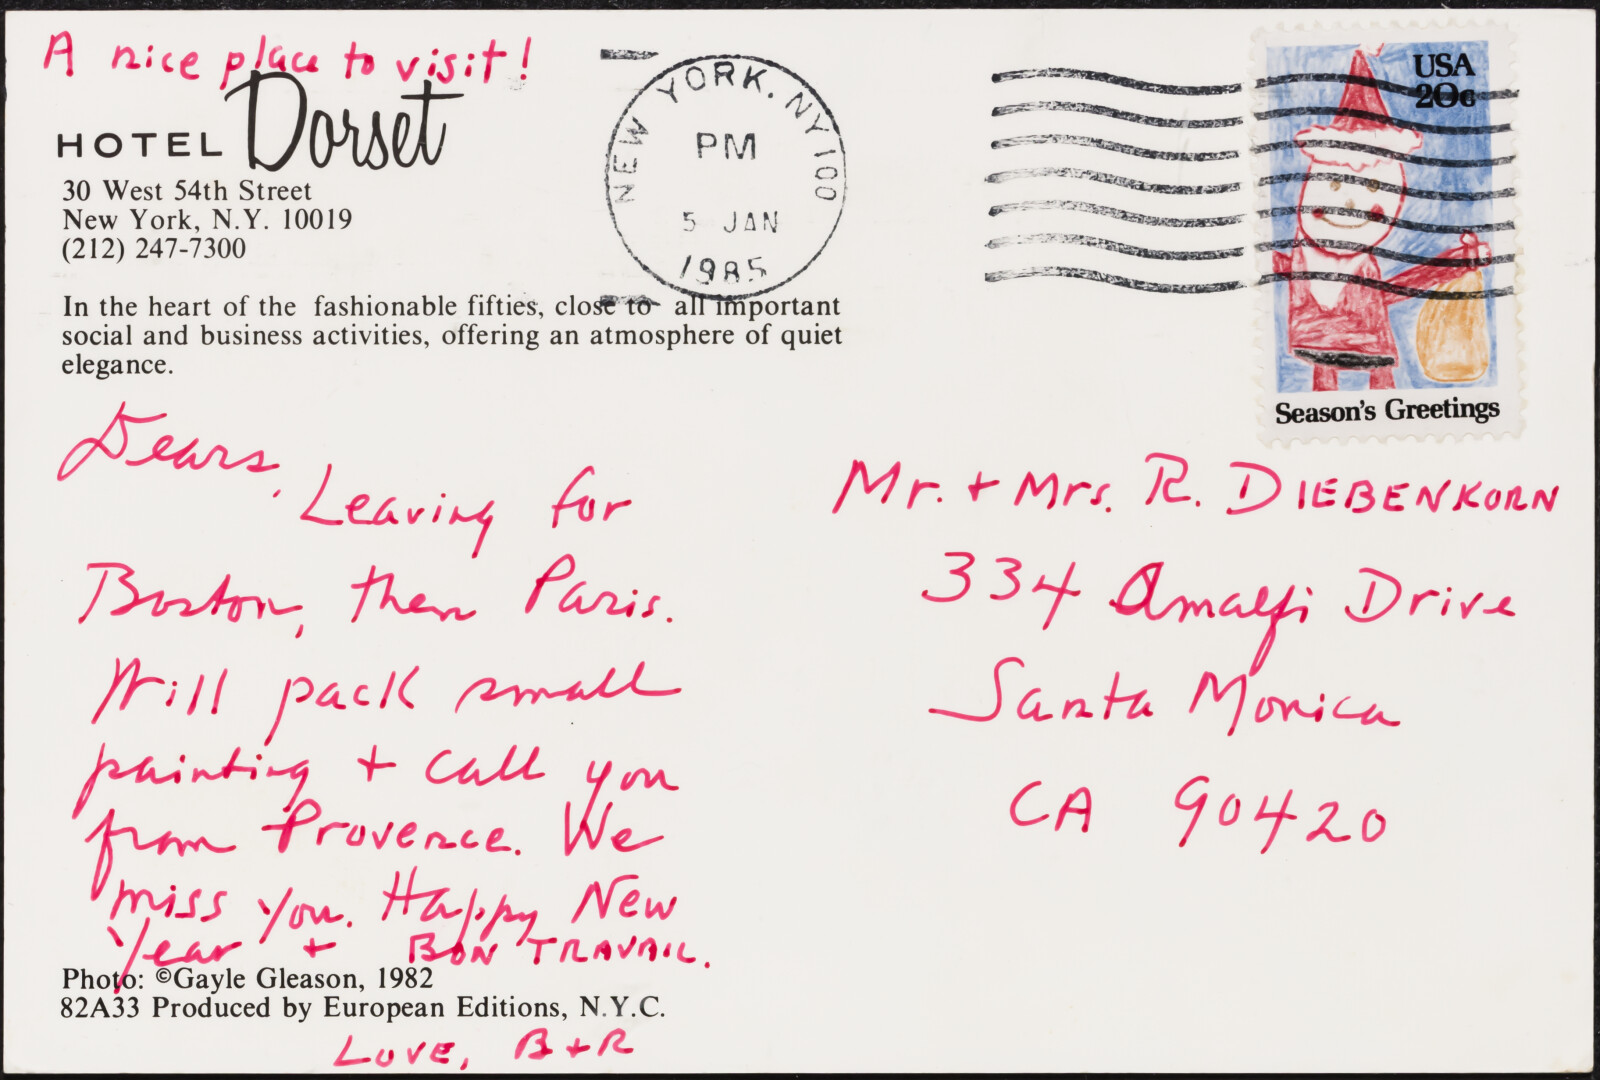 A nice place to visit!
HOTEL Dorset
30 West 54th Street
New York, N.Y. 10019
(212) 247-7300
In the heart of the fashionable fifties, close to all important
social and business activities, offering an atmosphere of quiet
elegance.
NEW YORK, NY 100
PM
5 JAN
1985
USA
20c
Season's Greetings
Dears,
Leaving for
Boston, then Paris.
Will pack small
painting + call you
from Provence. We
miss you. Happy New
Year + BON TRAVAIL.
Photo: ©Gayle Gleason, 1982
82A33 Produced by European Editions, N.Y.C.
LOVE, B+R
Mr. + Mrs. R. DIEBENKORN
334 Amalfi Drive
Santa Monica
CA 90420